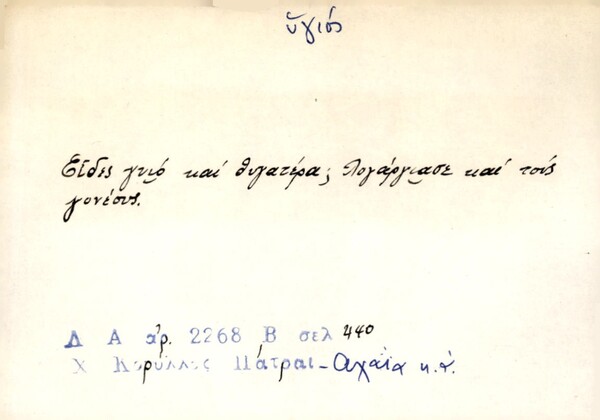 ὑγιός
Εἶδες γυιό καί θυγατέρα; λογάργιασε καί τούς
γονέους.
Λ Α ἀρ. 2268 Β σελ 440
Χ Κορύλλος Πάτραι - Αχαΐα κ.ἀ.